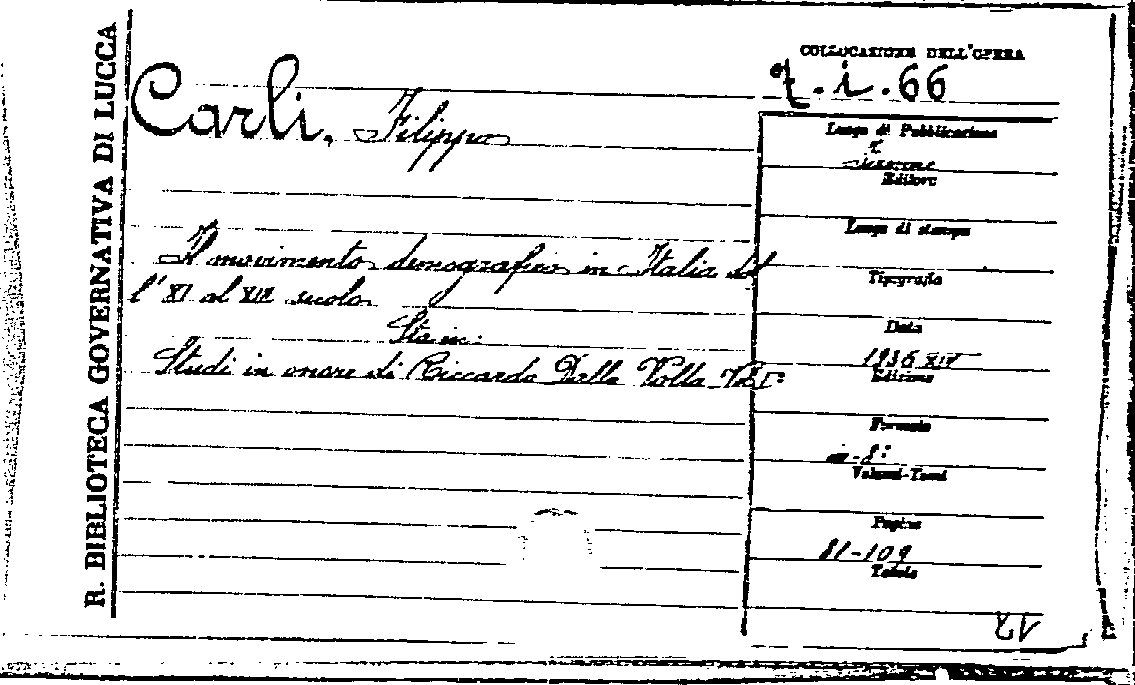 R. BIBLIOTECA GOVERNATIVA DI LUCCA
COLLOCAZIONE DELL'OPERA
z.i.66
Carli, Filippo
Il movimento demografico in Italia dal
l'XI al XIV secolo
Sta in:
Studi in onore di Riccardo Dalla Volta Vol I°
Luogo di Pubblicazione
Firenze
Editore
Luogo di stampa
Tipografia
Data
1936 XIV
Edizione
Formato
in-8°
Volumi-Tomi
Pagine
81-109
Tavole